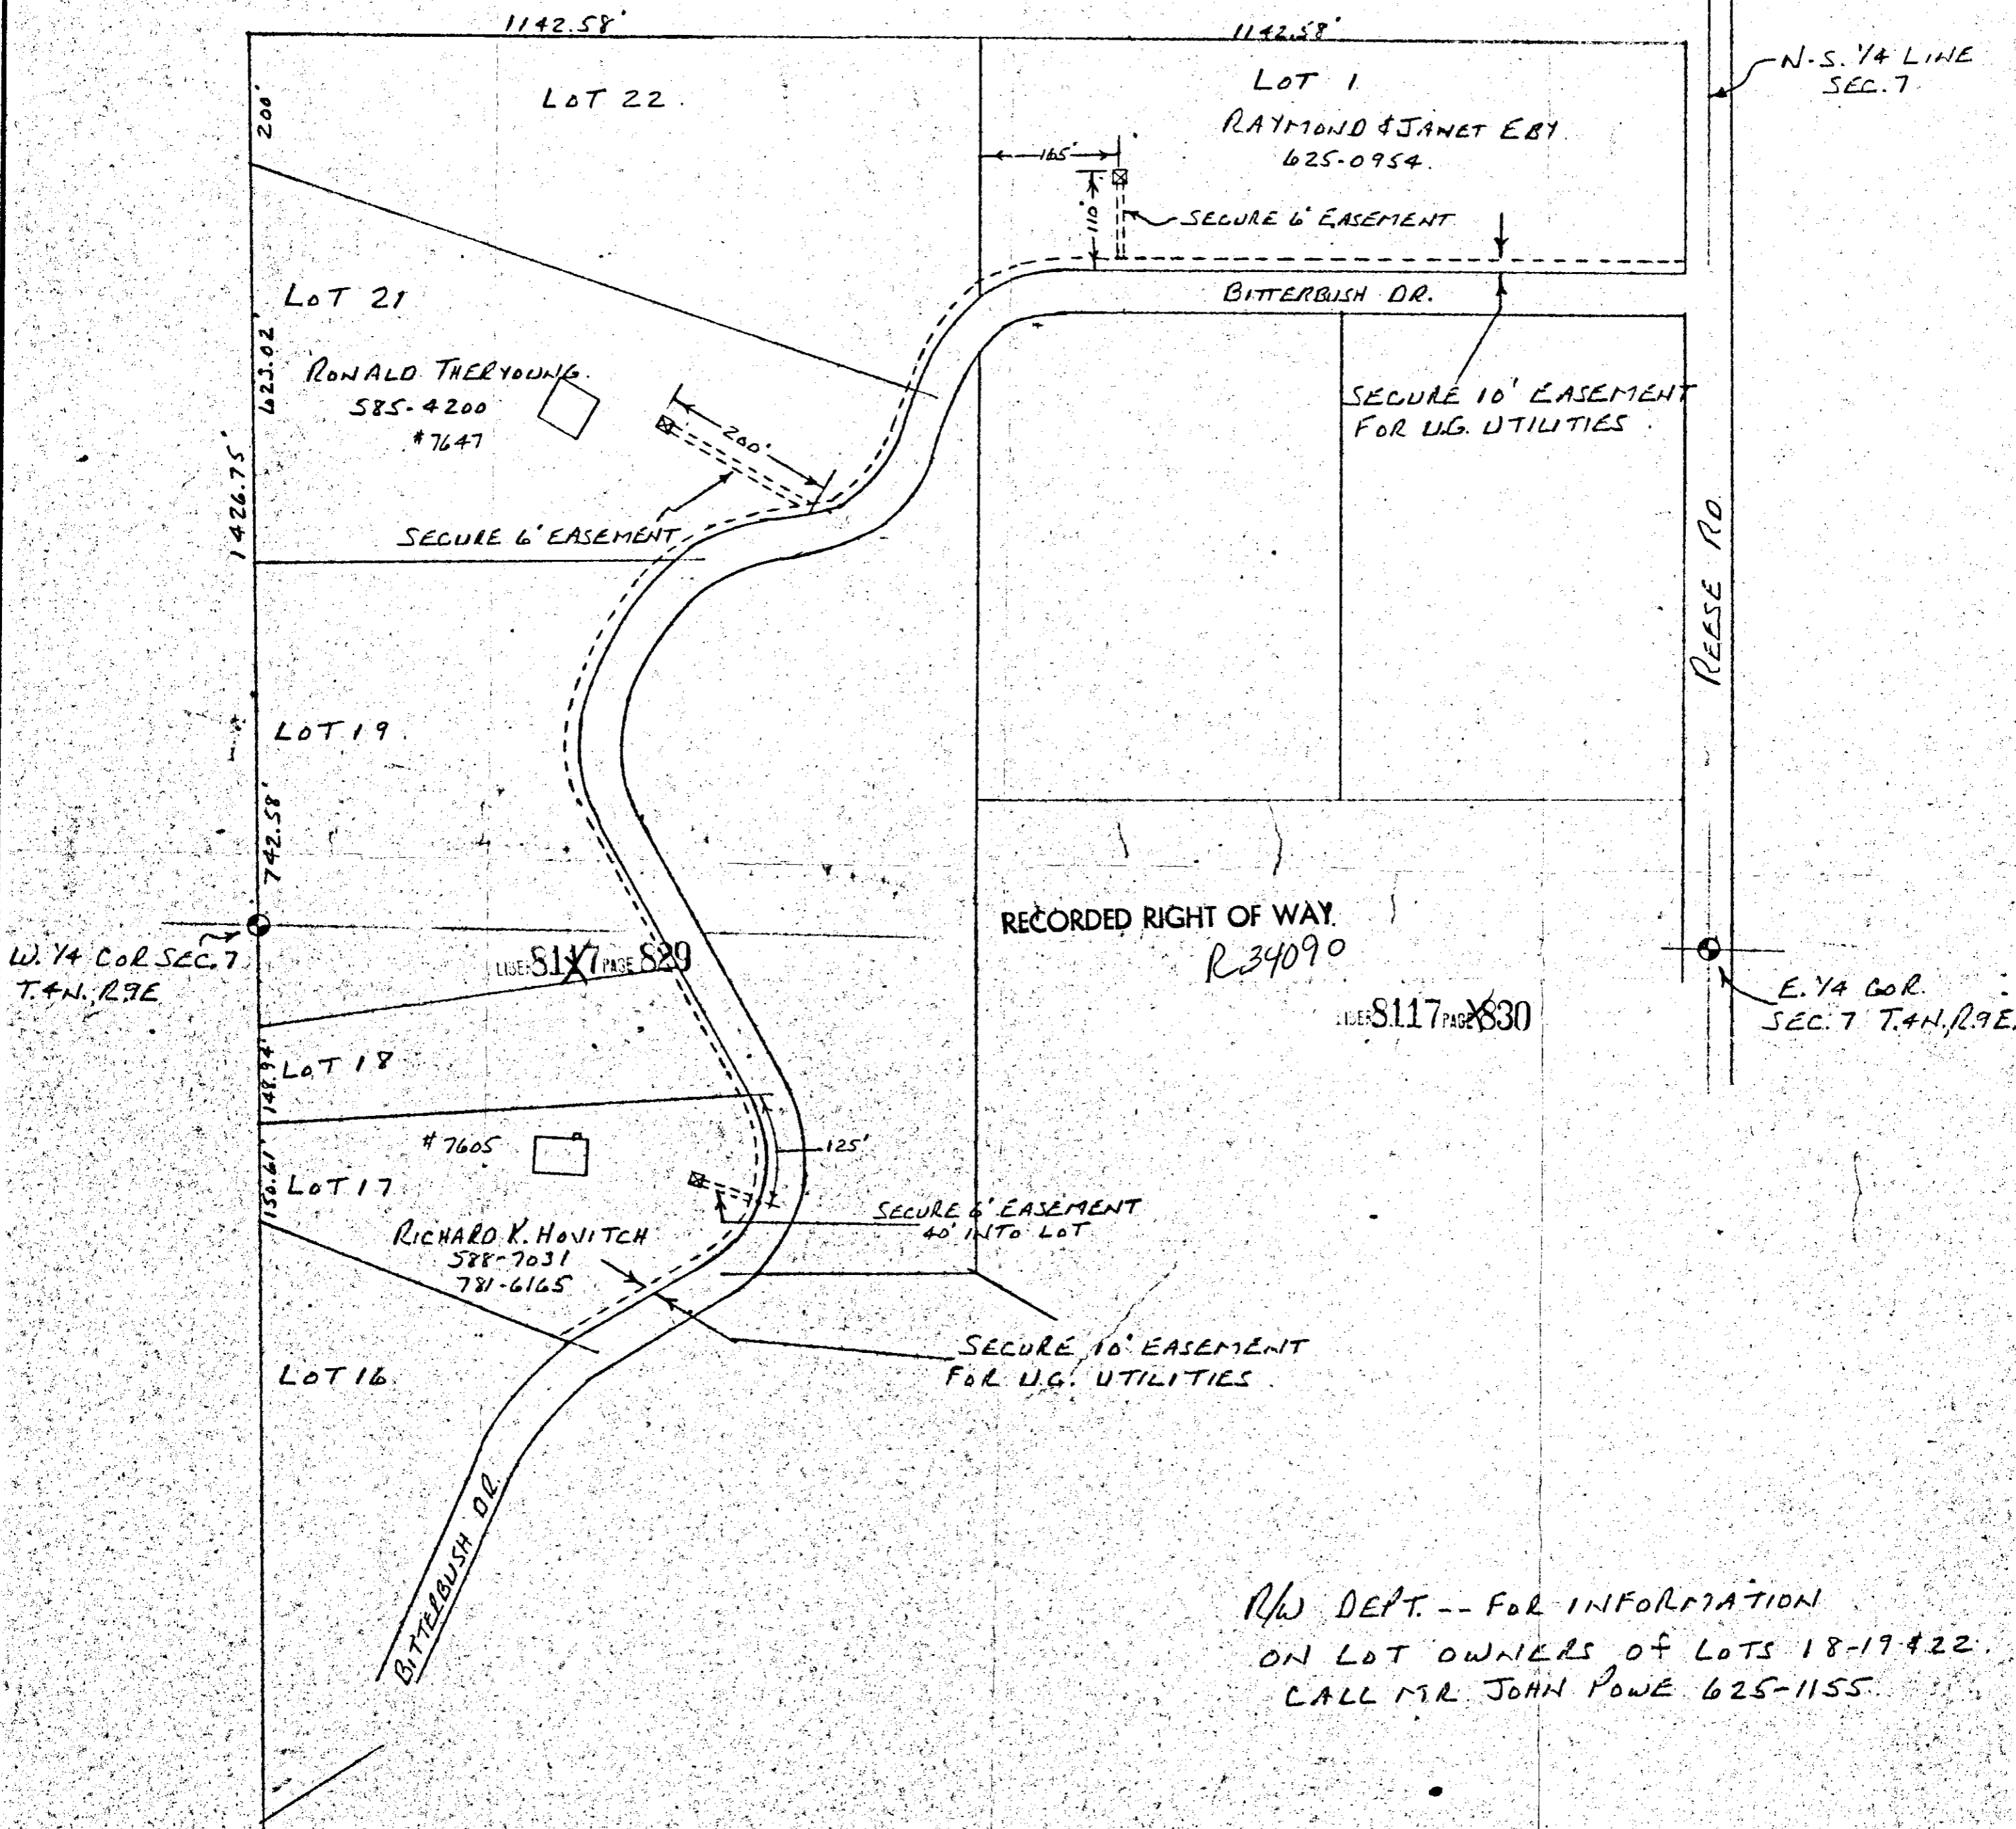 1142.58'
1142.58'
N-S. 1/4 LINE
SEC. 7
LOT 22
200'
LOT 1
RAYMOND & JANET EBY
625-0954
165'
110'
SECURE 6' EASEMENT
BITTERBUSH DR.
LOT 21
623.02'
RONALD THERYOUNG
585-4200
#7647
200'
SECURE 10' EASEMENT
FOR U.G. UTILITIES
1426.75'
SECURE 6' EASEMENT
REESE RD
LOT 19
742.58'
W. 1/4 COR SEC. 7
T.4N., R9E
LIBER 8117 PAGE 829
RECORDED RIGHT OF WAY.
R34090
LIBER 8117 PAGE 830
E. 1/4 COR.
SEC. 7 T.4N., R.9E.
LOT 18
148.94'
#7605
125'
150.61'
LOT 17
SECURE 6' EASEMENT
40' INTO LOT
RICHARD K. HOVITCH
588-7031
781-6165
SECURE 10' EASEMENT
FOR U.G. UTILITIES
LOT 16
BITTERBUSH DR.
R/W DEPT. -- FOR INFORMATION
ON LOT OWNERS OF LOTS 18-19 & 22
CALL MR JOHN POWE 625-1155